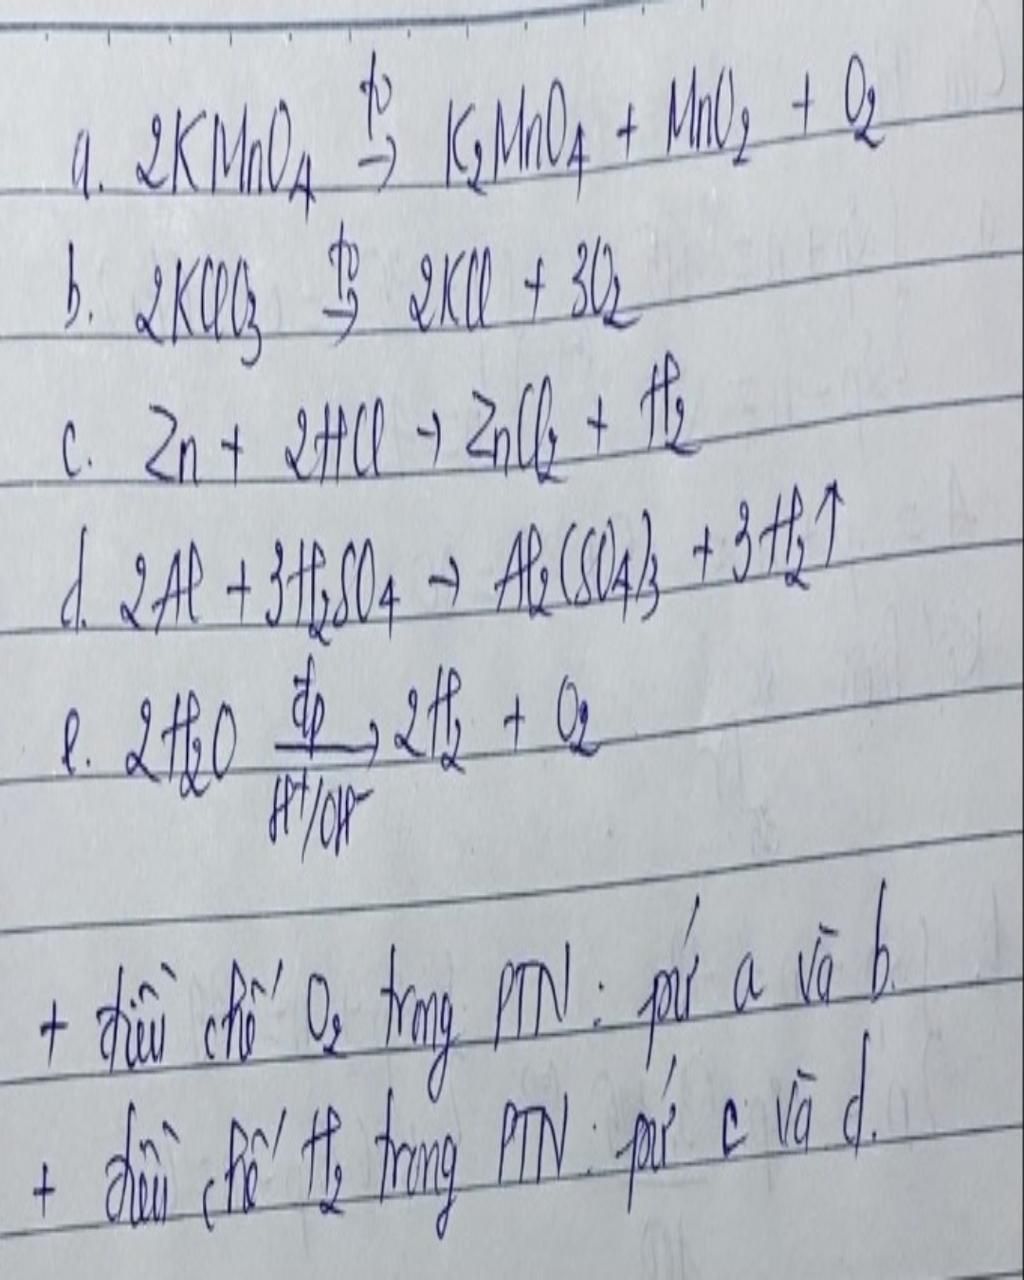 a. 2KMnO₄ t⁰→ K₂MnO₄ + MnO₂ + O₂
b. 2KClO₃ t⁰→ 2KCl + 3O₂
c. Zn + 2HCl → ZnCl₂ + H₂
d. 2Al + 3H₂SO₄ → Al₂(SO₄)₃ + 3H₂↑
e. 2H₂O đp→ H⁺/OH⁻ 2H₂ + O₂
+ điều chế O₂ trong PTN: pứ a và b.
+ điều chế H₂ trong PTN: pứ c và d.